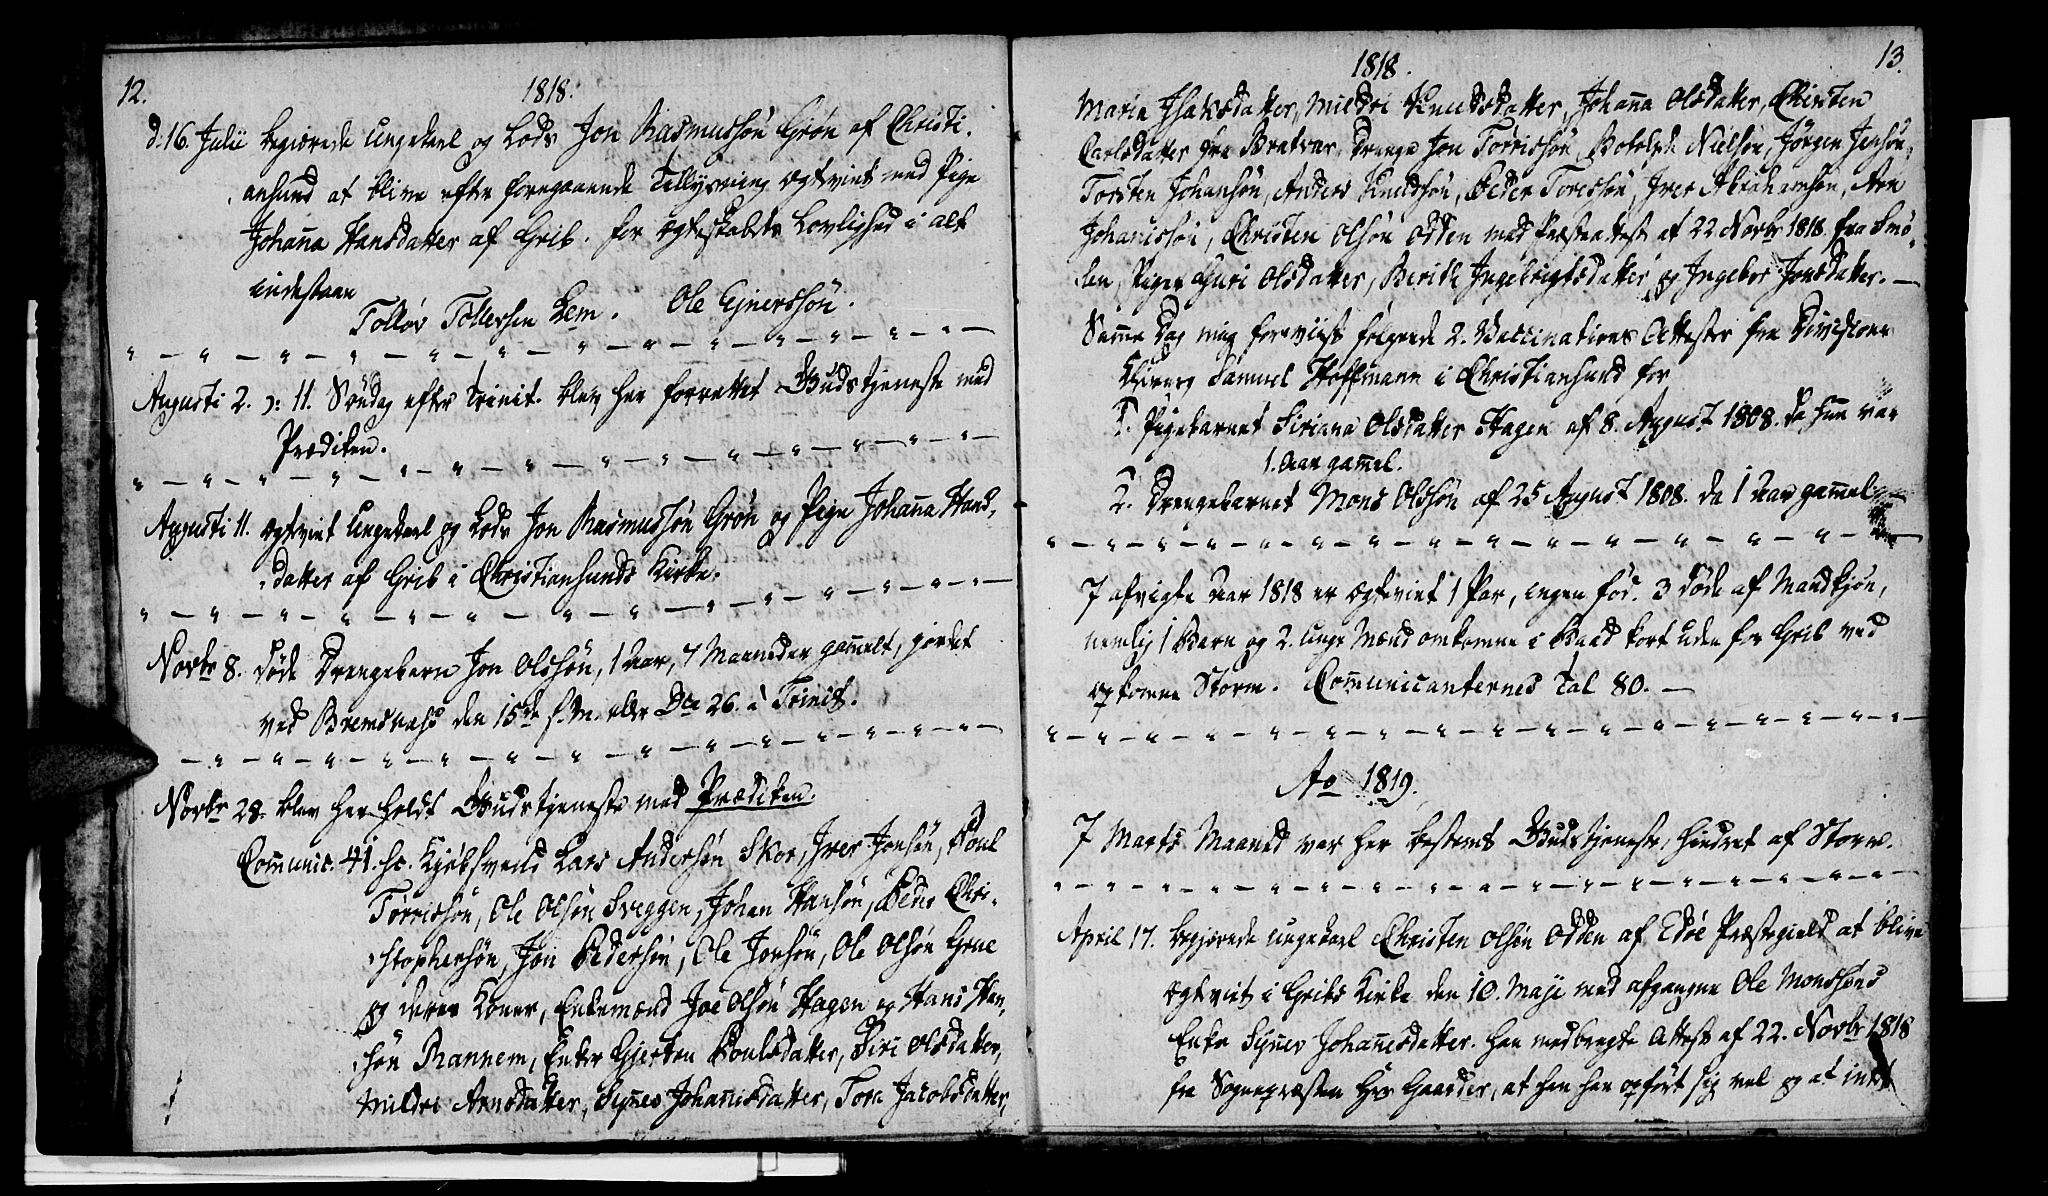 12.
1818.
d: 16. Julii begiærede Ungekarl og Lods Jon Rasmussøn Grøn af Christi-
ansund at blive efter foregaaende Tillysning ægteviet med Pige
Johanna Hansdatter af Grib. for Ægteskabets Lovlighed i alt
indestaae
Tolløv Tollefsen Lem. Ole Ejnersøn.
Augusti 2. ɔ: 11. Søndag efter Trinit. blev her forrettet Gudstjeneste med
Prædiken.
Augusti 11. ægteviet Ungekarl og Lods Jon Rasmussøn Grøn og Pige Johanna Hans-
datter af Grib i Christiansunds Kirke.
Novbr 8. døde Drengebarn Jon Olssøn, 1 Aar, 7 Maaneder gammelt, jordet
ved Bremsnæss den 15de s. M. eller Dca 26. à Trinit.
Novbr 28. blev her holdt Gudstjeneste med Prædiken.
Communic. 41. sc. Kjøbsvend Lars Andersøn Skor, Iver Jonsøn, Poul
Tørrissøn, Ole Olsøn Sveggen, Johan Hansøn, Peder Chri-
stophersøn, Jon Pedersøn, Ole Jonsøn, Ole Olsøn Grue
og deres Koner, Enkemænd Joe Olsøn Hagen og Hans Han-
søn Rannem, Enker Gjertru Poulsdatter, Siri Olsdatter,
Mildri Arnsdatter, Synnev Johannisdatter, Tora Jacobsdatter,
1818.
13.
Maria Isaksdatter, Mildri Knudsdatter, Johanna Olsdatter, Christen
Carlsdatter fra Bratvær, Drenge Jon Tørrissøn, Botolph Nielsøn, Jørgen Jensøn,
Torsten Johansøn, Anders Knudsøn, Peder Torissøn, Iver Abrahamsøn, Arn
Johanissøn, Christen Olsøn Odden med Præsteattest af 22 Novbr 1818 fra Smø-
len, Piger Guri Olsdatter, Berith Ingebrigtsdatter og Ingebor Jonsdatter. —
Samme Dag mig foreviist følgende 2. Vaccinations Attester fra Divisions
Chirurg Samuel Hoffmann i Christiansund for
1. Pigebarnet Siriana Olsdatter Hagen af 8. August 1808. da hun var
1. Aar gammel.
2. Drengebarnet Mons Olssøn af 25 August 1808. da 1 Aar gammel
I afvigte Aar 1818 er ægteviet 1 Par, ingen fød. 3 døde af Mandkjøn,
nemlig 1 Barn og 2. unge Mænd omkomne i Baad kort uden for Grib ved
opkomne Storm. Communicanternes Tal 80. —
Ao 1819.
I Marts Maaned var her bestemt Gudstjeneste, hindret af Storm.
April 17. begjærede Ungekarl Christen Olsøn Odden af Edøe Præstegield at blive
ægteviet i Gribs Kirke den 10. Maji med afgangne Ole Monssøns
Enke Synnev Johannisdatter. han medbragte Attest af 22. Novbr 1818
fra Sognepræsten Hr Gaarder, at han har opført sig vel og at intet